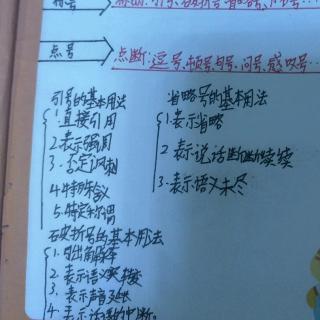 点号
点断:逗号、顿号、句号、问号、感叹号...
引号的基本用法
1.直接引用
2.表示强调
3.否定讽刺
4.特殊含义
5.特定称谓
省略号的基本用法
1.表示省略
2.表示说话断断续续
3.表示语义未尽
破折号的基本用法
1.引出解释
2.表示语义突转
3.表示声音延长
4.表示话语的中断。